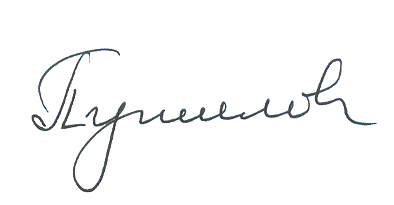 Пушилов